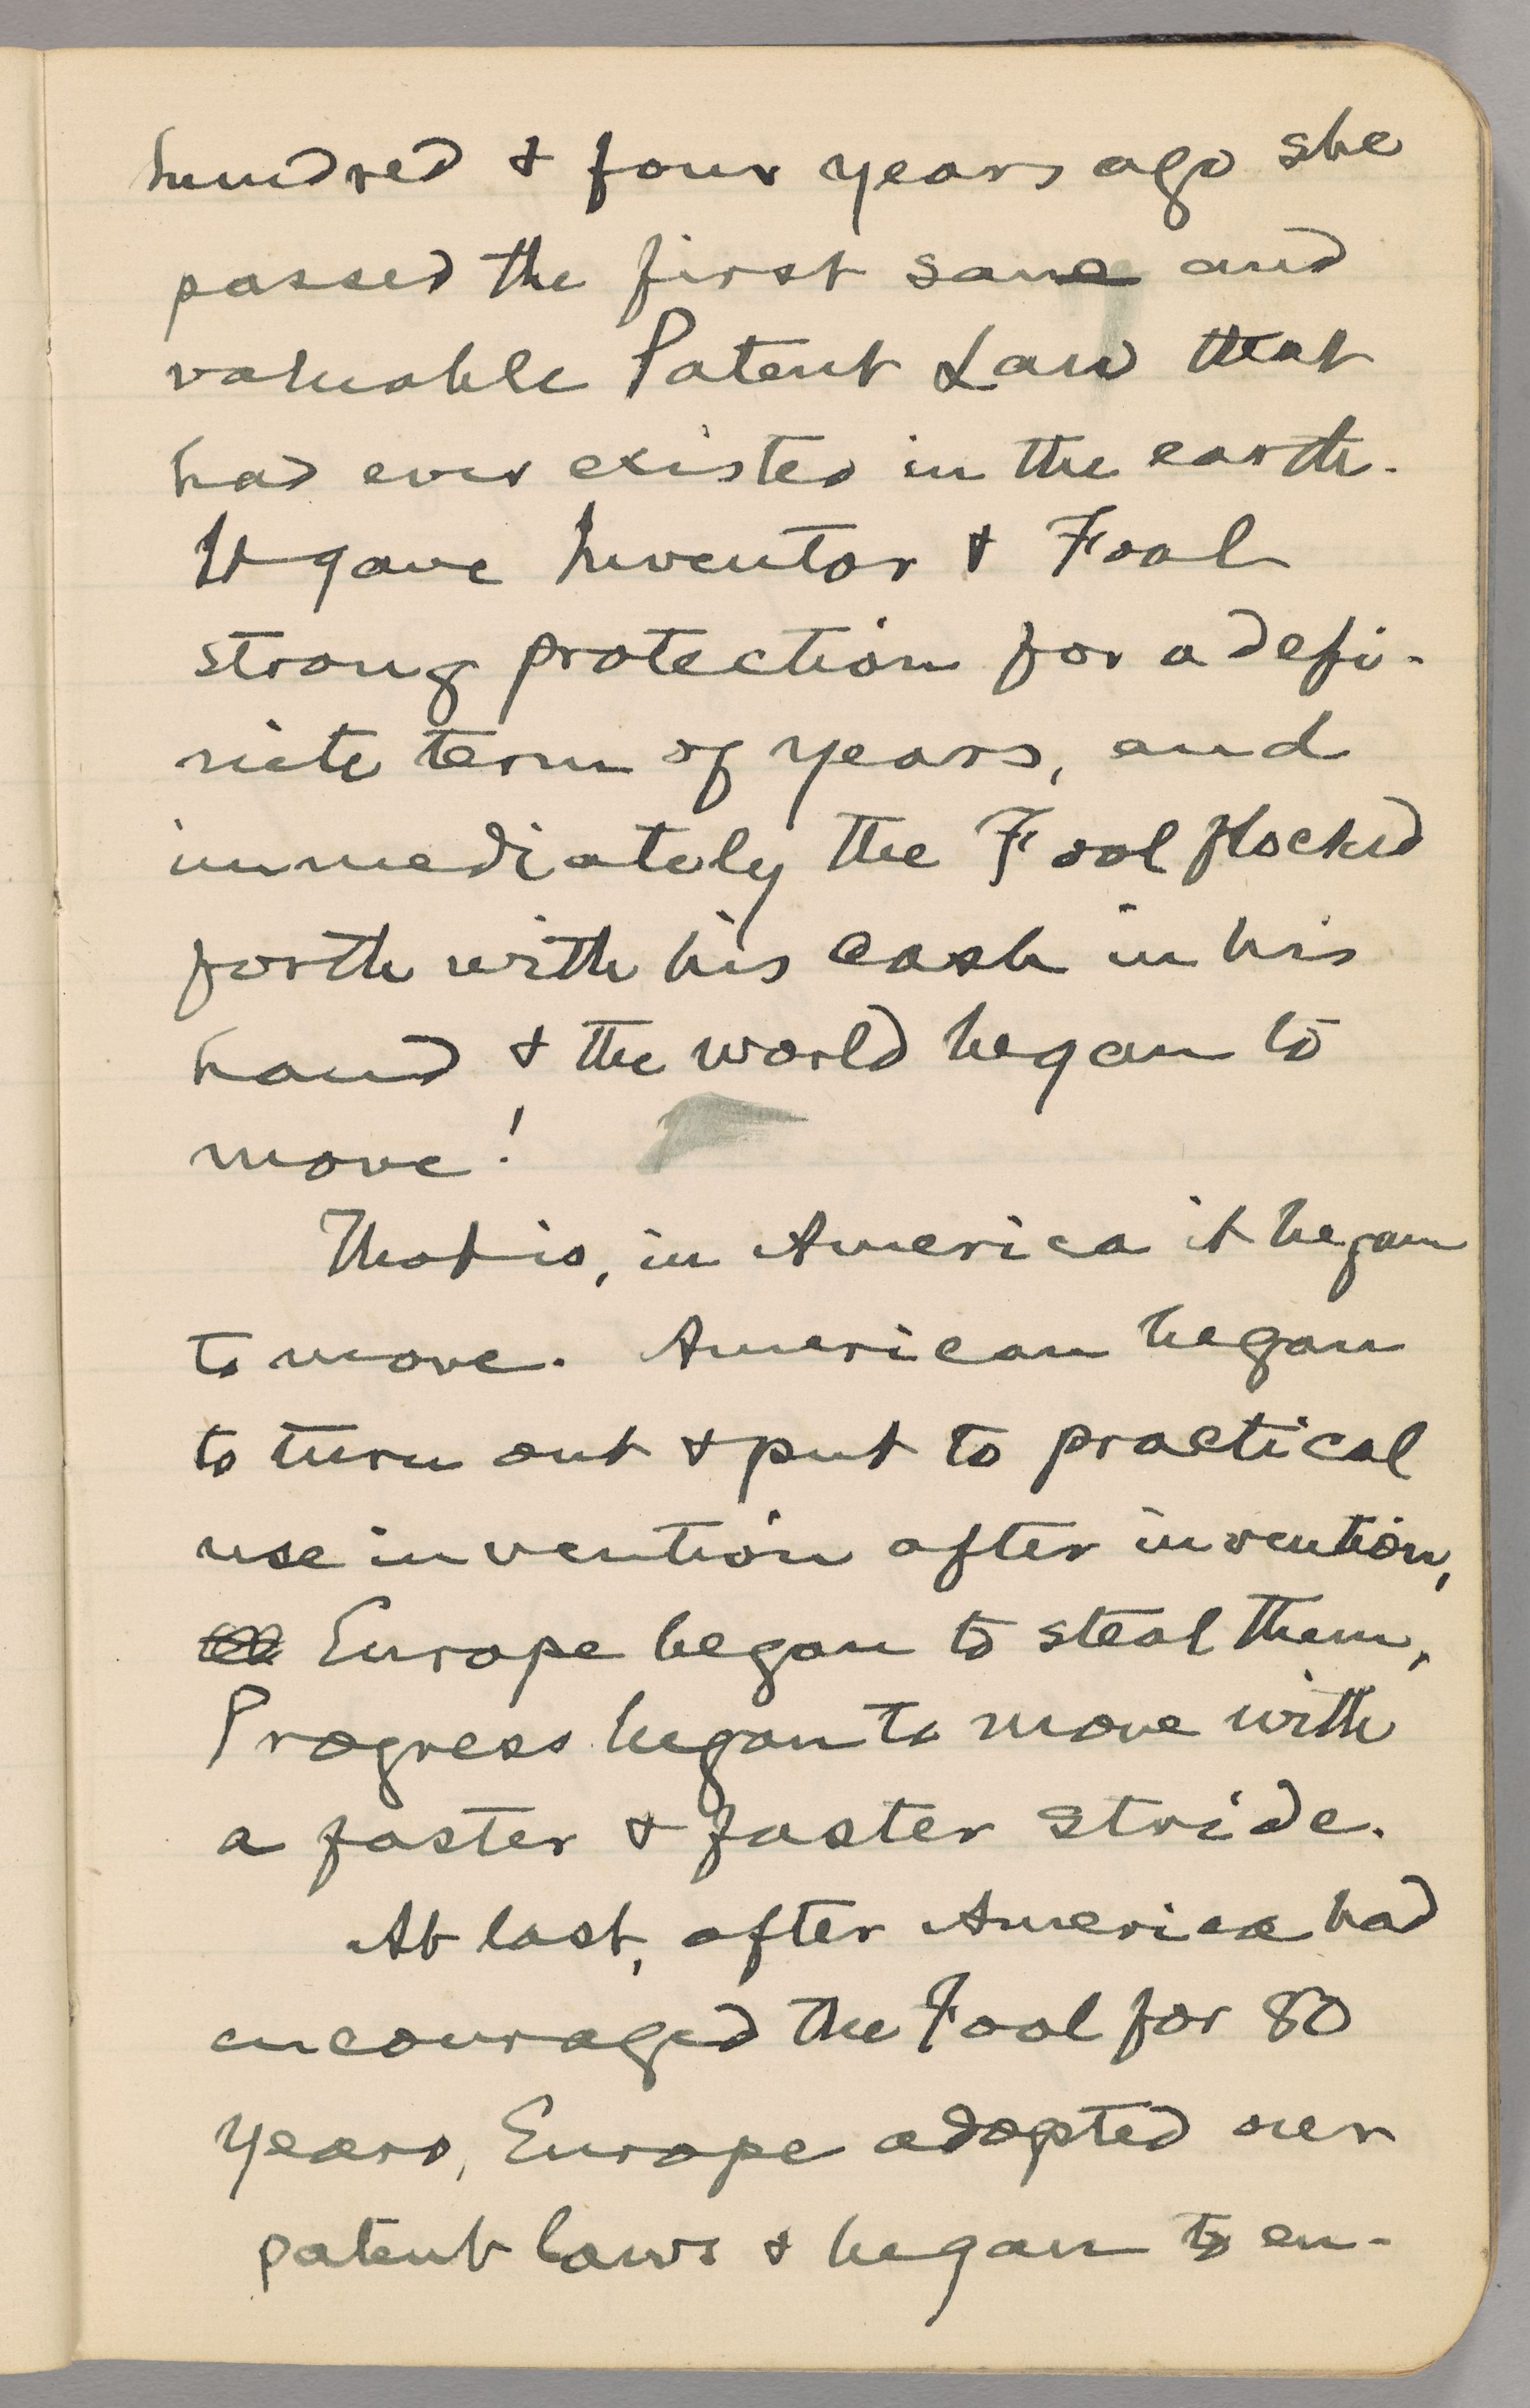 hundred & four years ago she
passed the first sane and
valuable Patent Law that
had ever existed in the earth.
It gave Inventor & Fool
strong protection for a defi-
nite term of years, and
immediately the Fool flocked
forth with his cash in his
hand & the world began to
move!
That is, in America it began
to move. American began
to turn out & put to practical
use invention after invention,
Europe began to steal them,
Progress began to move with
a faster & faster stride.
At last, after America had
encouraged the Fool for 80
years, Europe adopted our
patent laws & began to en-